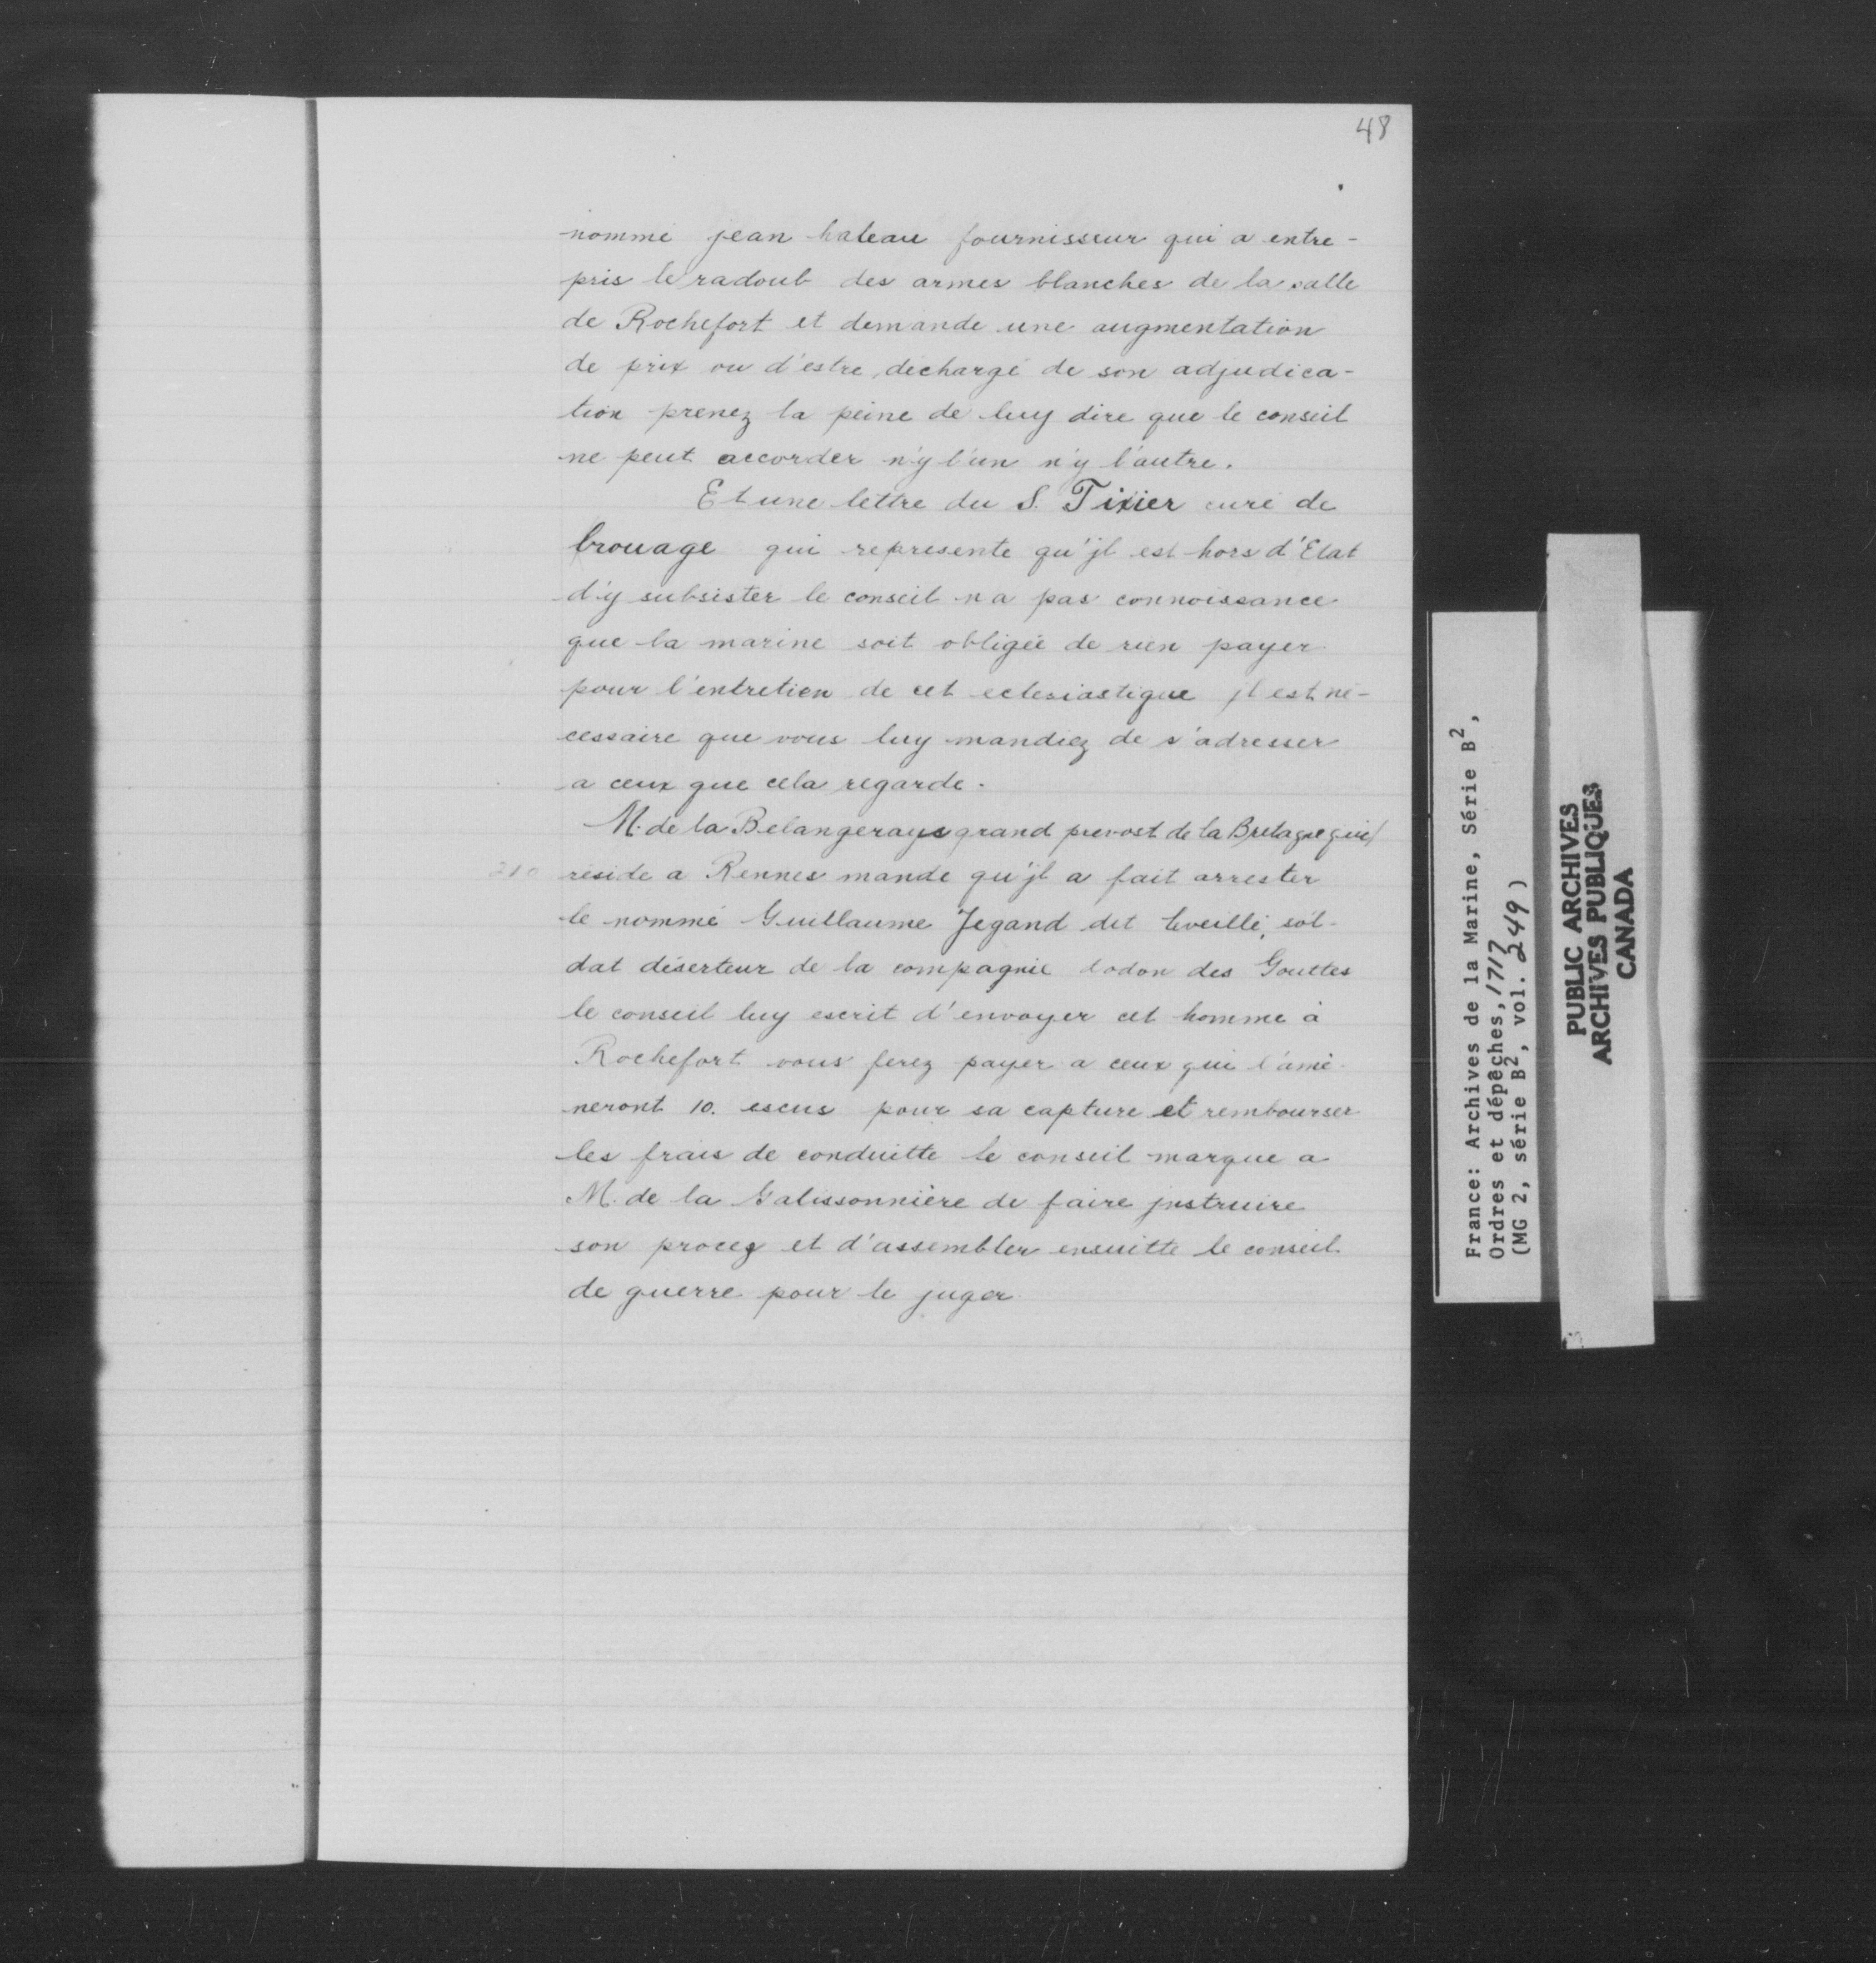 48
nommé jean hateau fournisseur qui a entre-
pris le radoub des armes blanches de la salle
de Rochefort et demande une augmentation
de prix ou d'estre déchargé de son adjudica-
tion prenez la peine de luy dire que le conseil
ne peut accorder n'y l'un n'y l'autre.
Et une lettre du S. Tixier curé de
brouage qui represente qu'jl est hors d'Etat
d'y subsister le conseil n a pas connoissance
que la marine soit obligée de rien payer
pour l'entretien de cet eclesiastique jl est né-
cessaire que vous luy mandiez de s'adresser
a ceux que cela regarde.
M. de la Belangeraye grand prevost de la Bretagne qui
210 réside a Rennes mande qu'jl a fait arrester
le nommé Guillaume Jegand dit Leveillé, sol-
dat déserteur de la compagnie dodon des Gouttes
le conseil luy escrit d'envoyer cet homme à
Rochefort vous ferez payer a ceux qui l'amè-
neront 10. escus pour sa capture et rembourser
les frais de conduitte le conseil marque a
M. de la Galissonnière de faire jnstruire
son procez et d'assembler ensuitte le conseil
de guerre pour le juger
France: Archives de la Marine, Série B2,
Ordres et dépêches, 1717
(MG 2, série B2, vol. 249)
PUBLIC ARCHIVES
ARCHIVES PUBLIQUES
CANADA